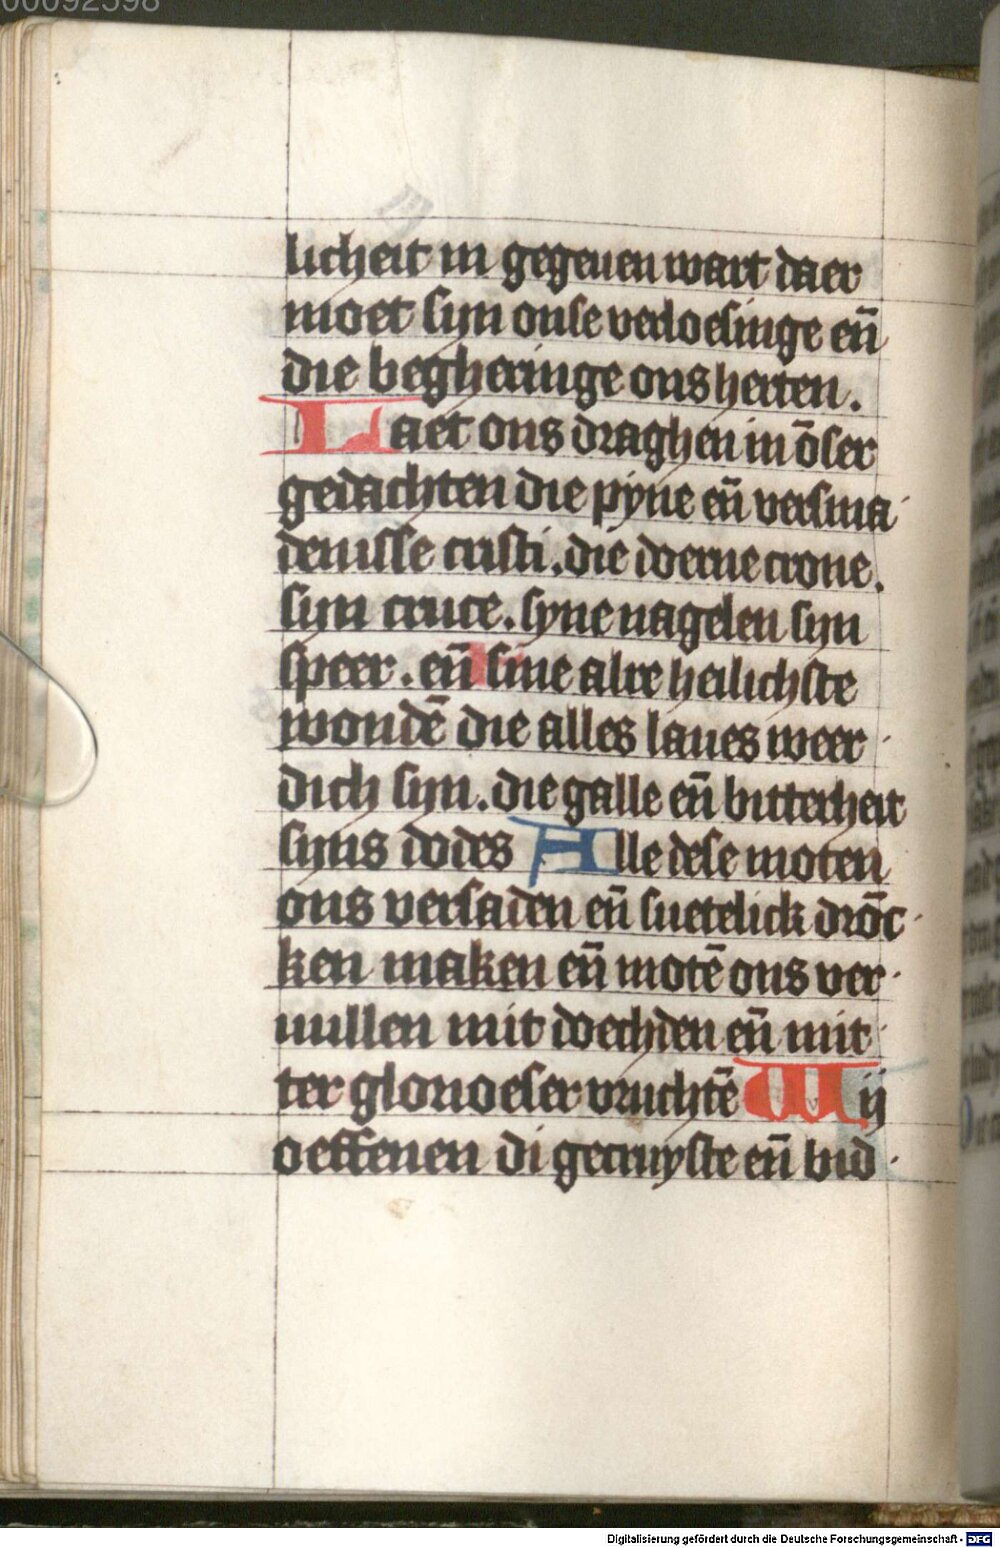 00092598
licheit in gegeuen wart da er
moet sijn onse verloesinge en̄
die begheringe ons herten.
Laet ons draghen in ōser
gedachten die pyne en̄ versma
denisse cristi. die doerne crone.
sijn cruce. syne nagelen sijn
speer. en̄ sine alre heilichste
wondē die alles laues weer
dich sijn. die galle en̄ bitterheit
sijns dodes Alle dese moten
ons versaden en̄ suetelick drōc
ken maken en̄ motē ons ver
uullen mit doechden en̄ mit
ter glorioeser vruchtē Wij
oeffenen di gecruyste en̄ bid
Digitalisierung gefördert durch die Deutsche Forschungsgemeinschaft - DFG